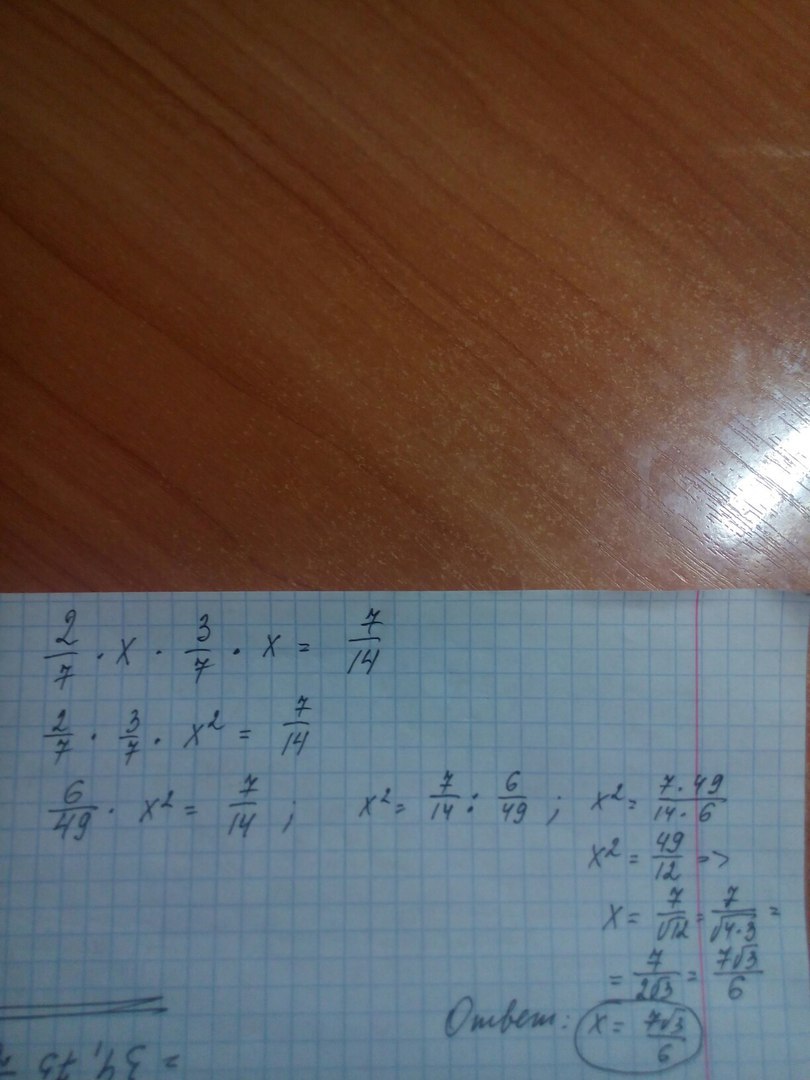 2/7 · x · 3/7 · x = 7/14
2/7 · 3/7 · x² = 7/14
6/49 · x² = 7/14 ; x² = 7/14 : 6/49 ; x² = 7·49/14·6
x² = 49/12 =>
x = 7/√12 = 7/√4·3 =
= 7/2√3 = 7√3/6
Ответ: x = 7√3/6